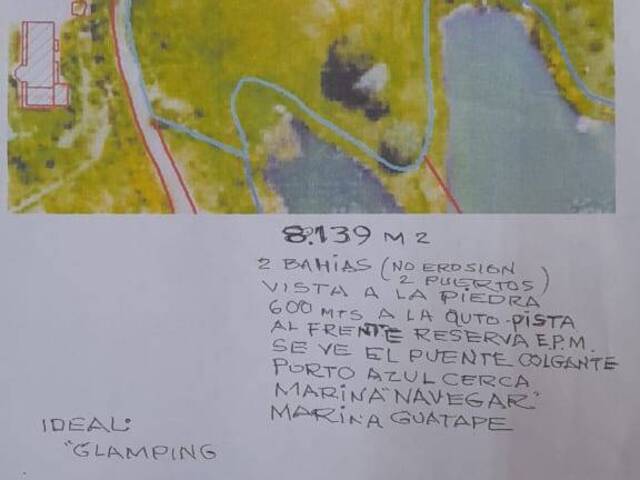 8.139 M2
2 BAHIAS (NO EROSION
2 PUERTOS)
VISTA A LA PIEDRA
600 MTS A LA QUTO-PISTA
AL FRENTE RESERVA E.P.M.
SE VE EL PUENTE COLGANTE
PORTO AZUL CERCA
MARINA "NAVEGAR"
MARINA GUATAPE
IDEAL:
"GLAMPING